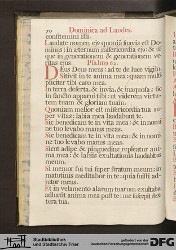 70 Dominica ad Laudes.
confitemini illi.
Laudate nomen ejus quoniā suavis est Do-
minus: in æternum misericordia ejus: & us-
que in generationem & generationem ve-
ritas ejus. Psalmus 62.
Deus Deus meus: ad te de luce vigilo.
Sitivit in te anima mea: quam multi-
pliciter tibi caro mea.
In terra deserta, & invia, & inaquosa: sic
in sancto apparui tibi: ut viderem virtu-
tem tuam: & gloriam tuam.
Quoniam melior est misericordia tua su-
per vitas: labia mea laudabunt te.
Sic benedicam te in vita mea: & in nomi-
ne tuo levabo manus meas.
Sic benedicam te in vita mea: & in nomi-
ne tuo levabo manus meas.
Sicut adipe & pinguedine repleatur anima
mea: & labiis exultationis laudabit os
meum.
Si memor fui tui super stratum meum: in
matutinis meditabor in te: quia fuisti ad-
jutor meus.
Et in velamento alarum tuarum exultabo:
adhæsit anima mea post te: me suscepit dex-
tera tua.
Stadtbibliothek
und Stadtarchiv Trier
DFG